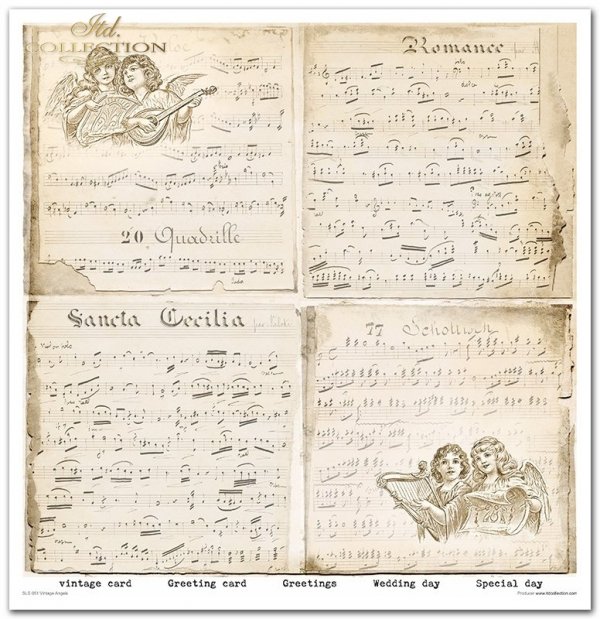 Itd.
COLLECTION
20 Quadrille
Romance
solo
Sancta Cecilia
77 Schottisch
vintage card Greeting card Greetings Wedding day Special day
SLS 053 Vintage Angels
Producer: www.itdcollection.com